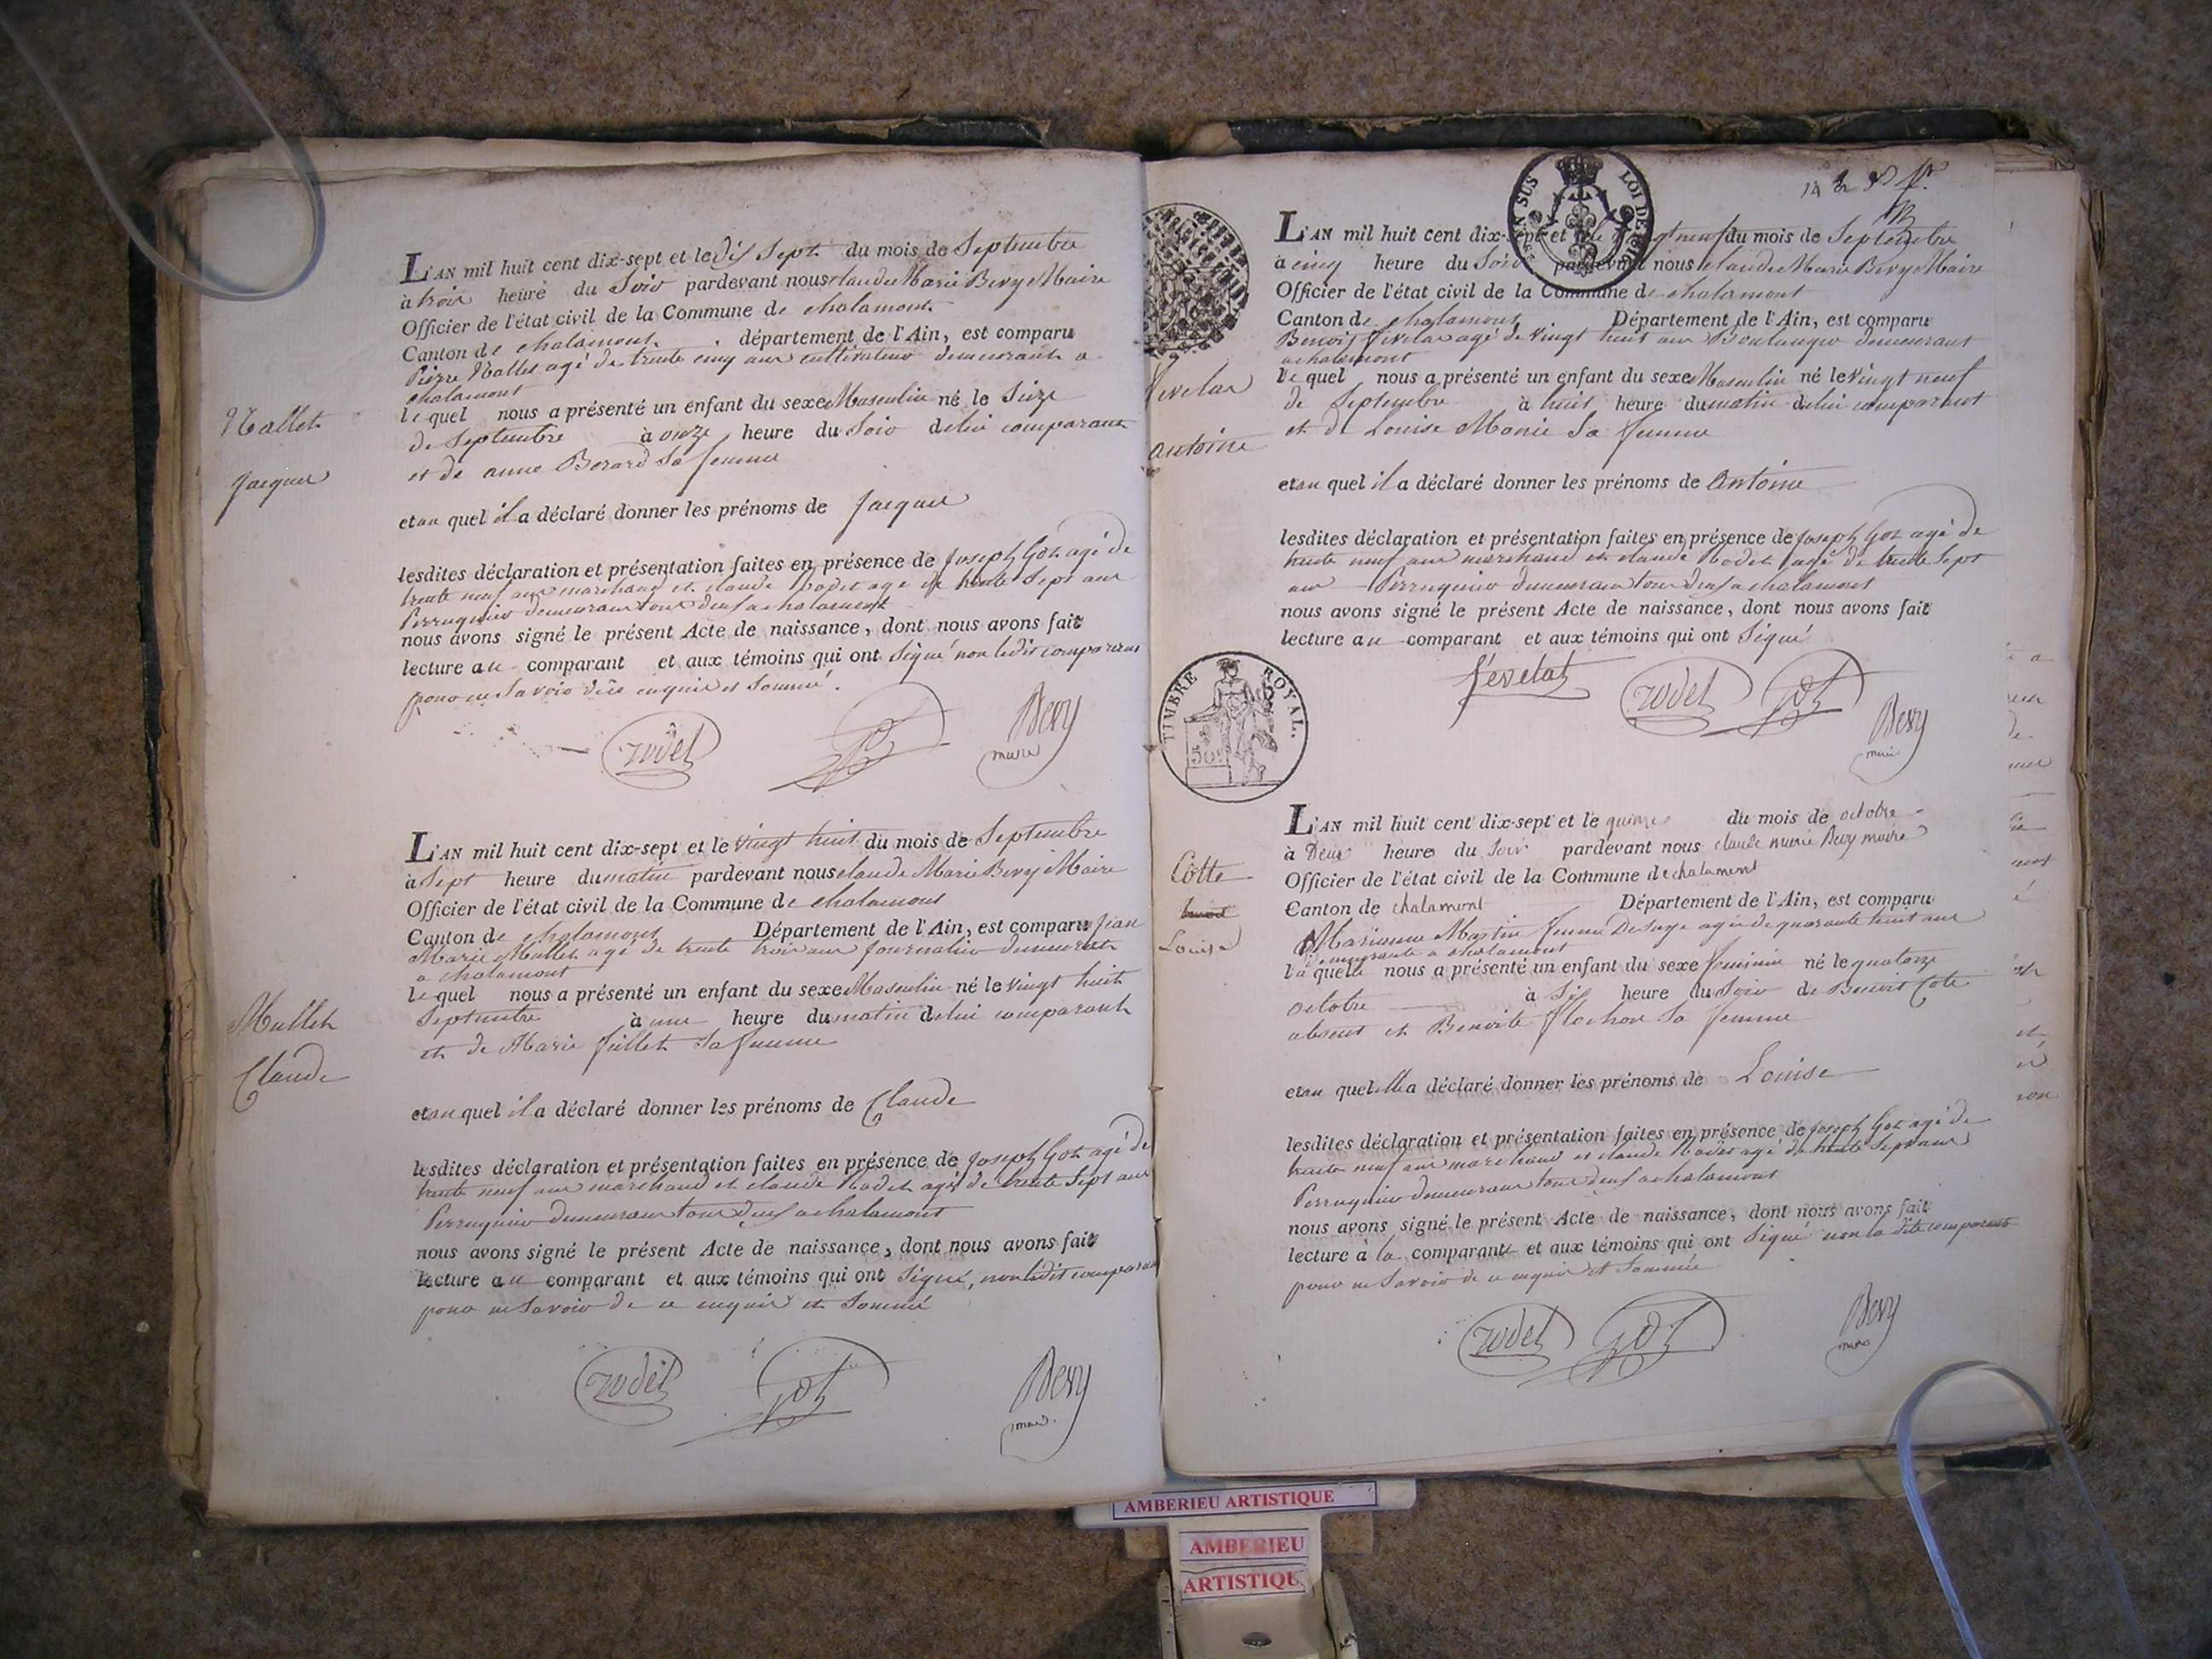 L'AN mil huit cent dix-sept et le dix Sept du mois de Septembre
à trois heure du Soir pardevant nous claude Marie Bevy Maire
Officier de l'état civil de la Commune de chalamont
Canton de chalamont département de l'Ain, est comparu
Pierre Nallet agé de trente cinq ans cultivateur demeurant a
chalamont
Nallet
le quel nous a présenté un enfant du sexe Masculin né le Seize
de Septembre à onze heure du Soir de lui comparant
et de anne Berard Sa femme
Jacques
et au quel il a déclaré donner les prénoms de Jacques
lesdites déclaration et présentation faites en présence de Joseph Got agé de
trente neuf ans marchand et claude Rodet agé de trente Sept ans
Perruquier demeurant tous deux a chalamont
nous avons signé le présent Acte de naissance, dont nous avons fait
lecture au comparant et aux témoins qui ont Signé non ledit comparant
pour ne Savoir de ce enquis et Sommé.
rodet
Bevy
maire
L'AN mil huit cent dix-sept et le vingt huit du mois de Septembre
à Sept heure du matin pardevant nous claude Marie Bevy Maire
Officier de l'état civil de la Commune de chalamont
Canton de chalamont Département de l'Ain, est comparu Jean
Marie Mallet agé de trente trois ans Journalier demeurant
a chalamont
le quel nous a présenté un enfant du sexe Masculin né le vingt huit
Mallet
Septembre à une heure du matin de lui comparant
et de Marie Juillet Sa femme
Claude
et au quel il a déclaré donner les prénoms de Claude
lesdites déclaration et présentation faites en présence de Joseph Got agé de
trente neuf ans marchand et claude Rodet agé de trente Sept ans
Perruquier demeurant tous deux a chalamont
nous avons signé le présent Acte de naissance, dont nous avons fait
lecture au comparant et aux témoins qui ont Signé, non ledit comparant
pour ne Savoir de ce enquis et Sommé
rodet
got
Bevy
maire
LOI DE 1816
L'AN mil huit cent dix-sept et le vingt neuf du mois de Septembre
à cinq heure du Soir pardevant nous claude Marie Bevy Maire
Officier de l'état civil de la Commune de chalamont
Canton de chalamont Département de l'Ain, est comparu
Benoit fevelat agé de vingt huit ans Boulanger demeurant
a chalamont
fevelat
le quel nous a présenté un enfant du sexe Masculin né le vingt neuf
de Septembre à huit heure du matin de lui comparant
antoine
et de Louise Monié Sa femme
et au quel il a déclaré donner les prénoms de Antoine
lesdites déclaration et présentation faites en présence de Joseph Got agé de
trente neuf ans marchand et claude Rodet agé de trente Sept
ans Perruquier demeurant tous deux a chalamont
nous avons signé le présent Acte de naissance, dont nous avons fait
lecture au comparant et aux témoins qui ont Signé
fevelat
rodet
got
Bevy
maire
TIMBRE ROYAL.
50c
L'AN mil huit cent dix-sept et le quinze du mois de octobre
à Deux heures du Soir pardevant nous claude marie Bevy maire
Cotte
Officier de l'état civil de la Commune de chalamont
Canton de chalamont Département de l'Ain, est comparu
Louise
Marianne Martin femme Desuge agée de quarante huit ans
demeurante a chalamont
la quelle nous a présenté un enfant du sexe feminin né le quatorze
octobre à Six heure du Soir de Benoit Cote
absent et Benoite flachon Sa femme
et au quel Elle a déclaré donner les prénoms de Louise
lesdites déclaration et présentation faites en présence de Joseph Got agé de
trente neuf ans marchand et claude Rodet agé de trente Sept ans
Perruquier demeurant tous deux a chalamont
nous avons signé le présent Acte de naissance, dont nous avons fait
lecture à la comparante et aux témoins qui ont Signé non la dite comparante
pour ne Savoir de ce enquis et Sommée
rodet
got
Bevy
maire
AMBERIEU ARTISTIQUE
AMBERIEU
ARTISTIQUE